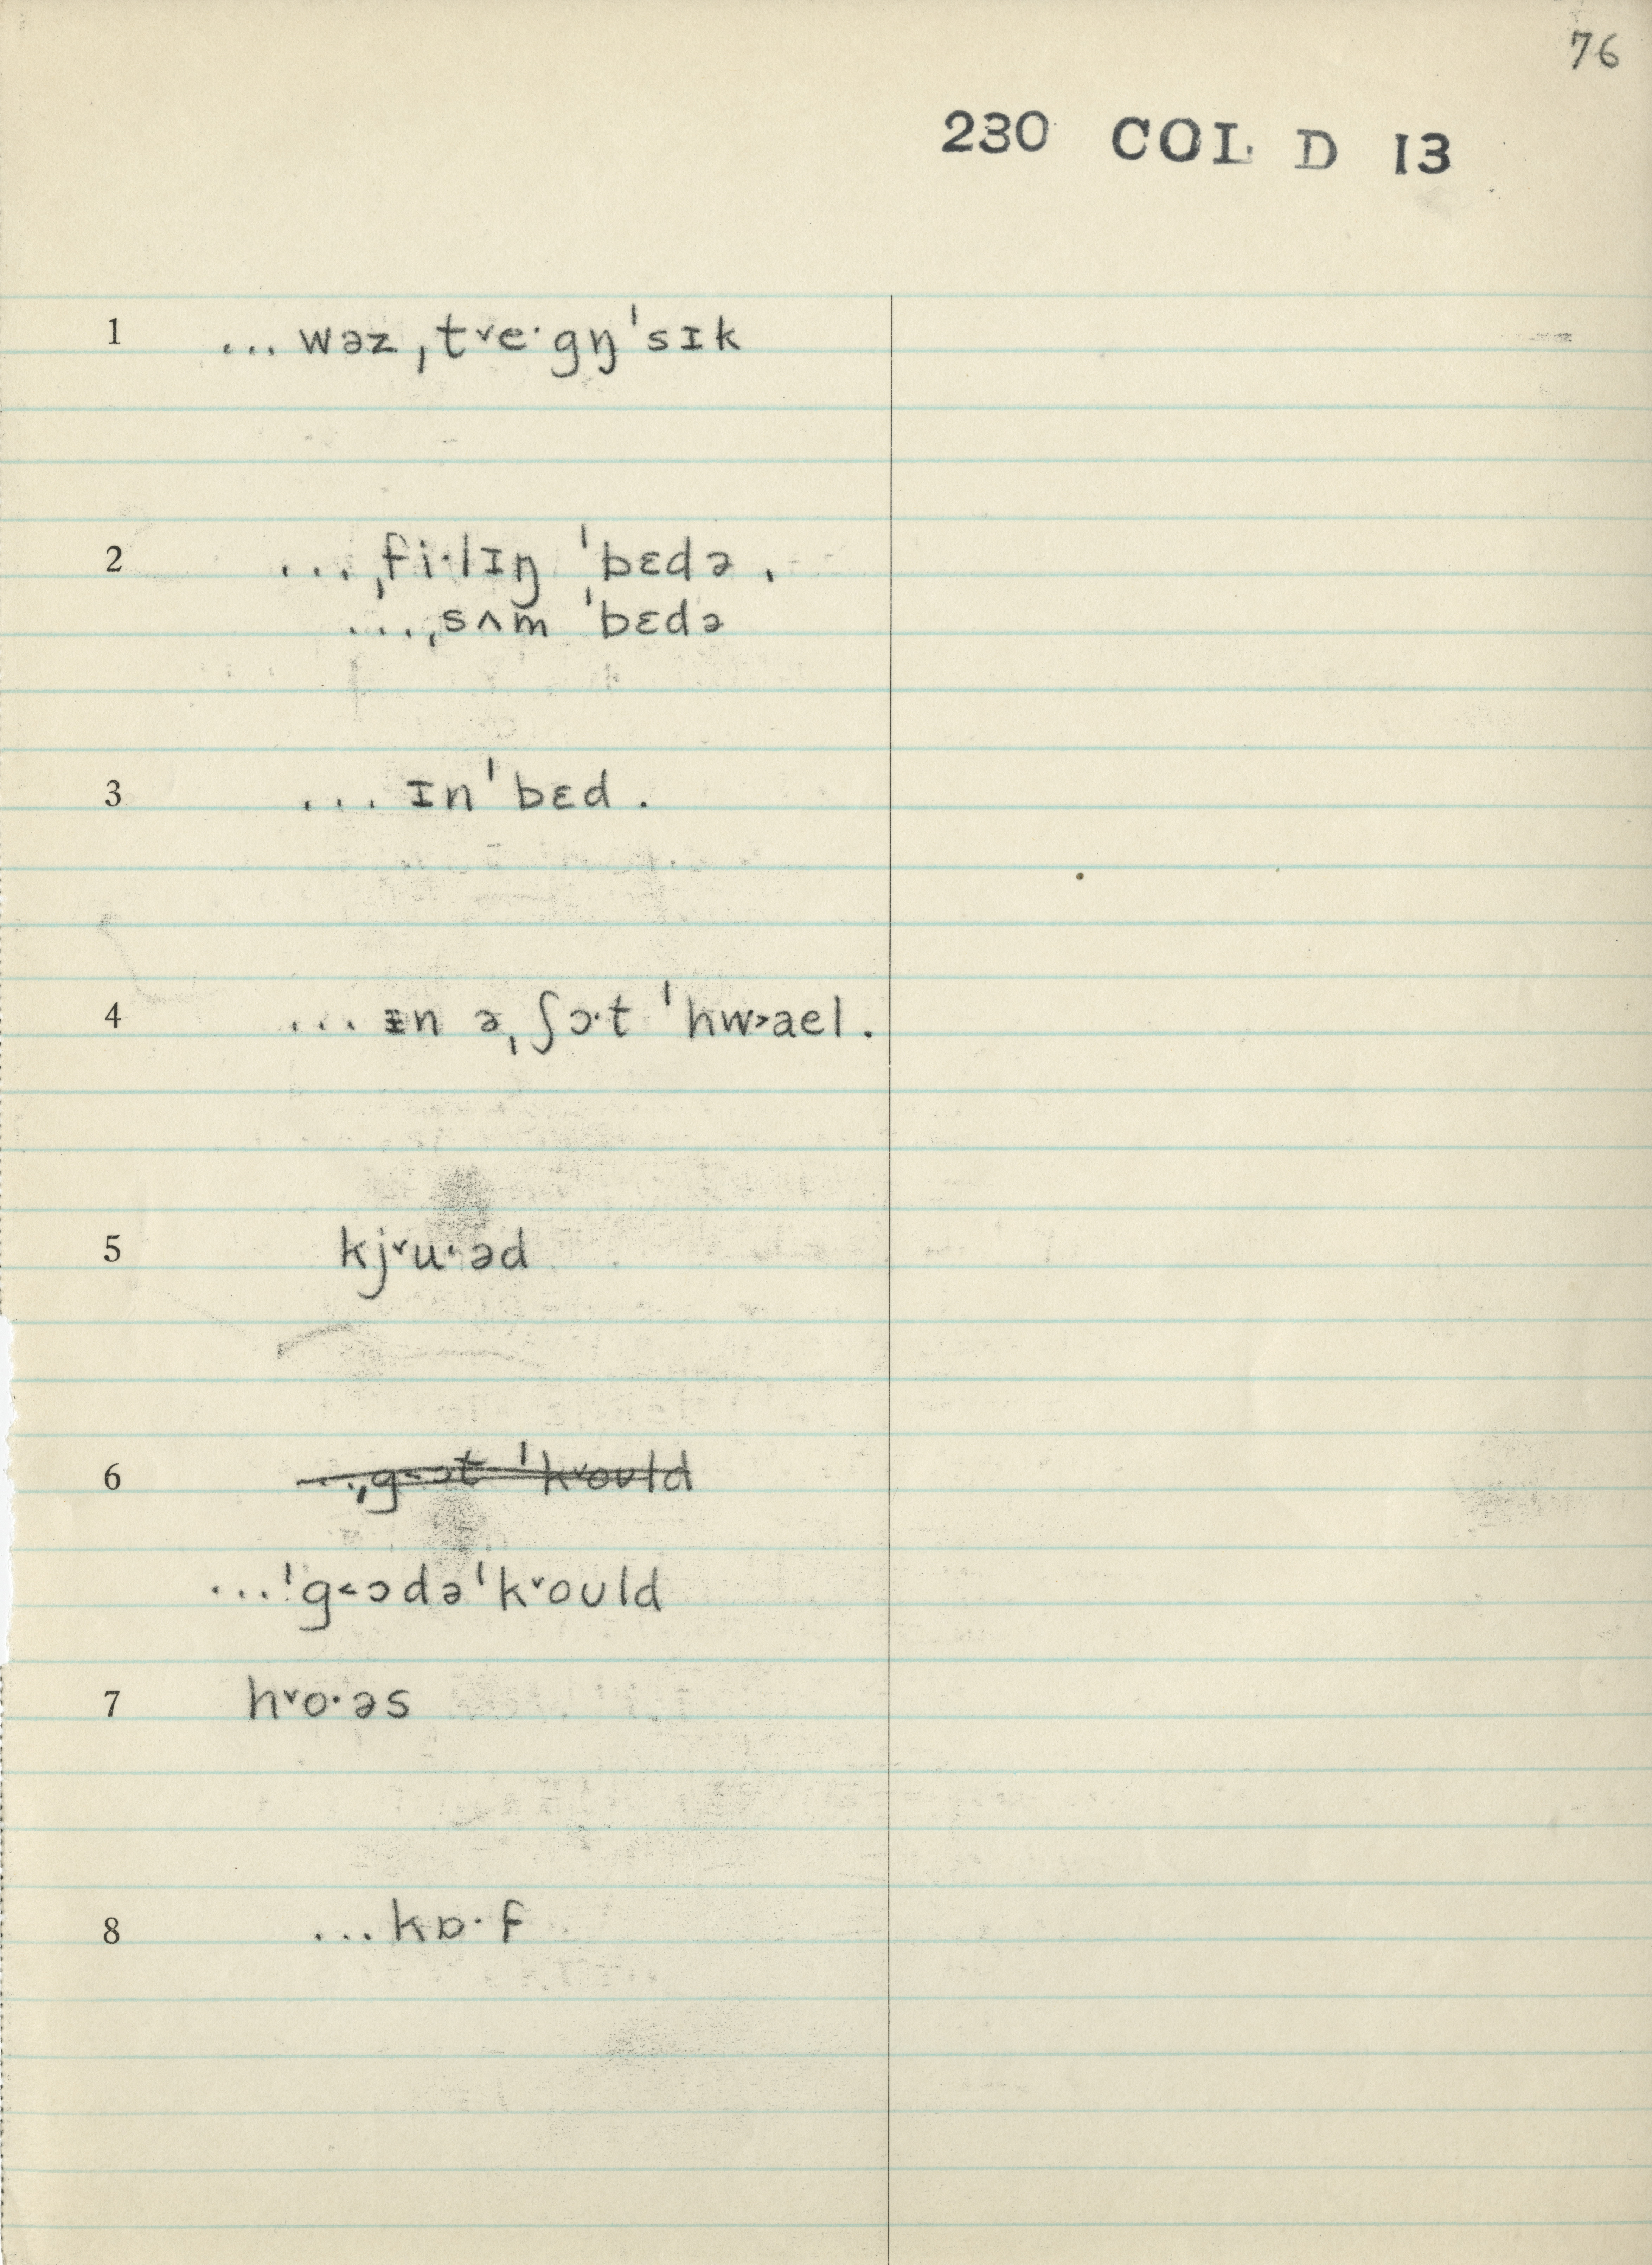 76
230 COL D 13
1 ... wəz ˌt˅e·gŋˈsɪk
2 ... ˌfi·lɪŋ ˈbɛdə .
... ˌsʌm ˈbɛdə
3 ... ɪnˈbɛd .
4 ... ɪn əˌʃɔ·t ˈhw˃ael .
5 kj˅u·əd
6 ... ˌg˂ɔt ˈk˅oʊld
...ˈg˂ɔdəˈk˅oʊld
7 h˅o·əs
8 ...kɒ·f